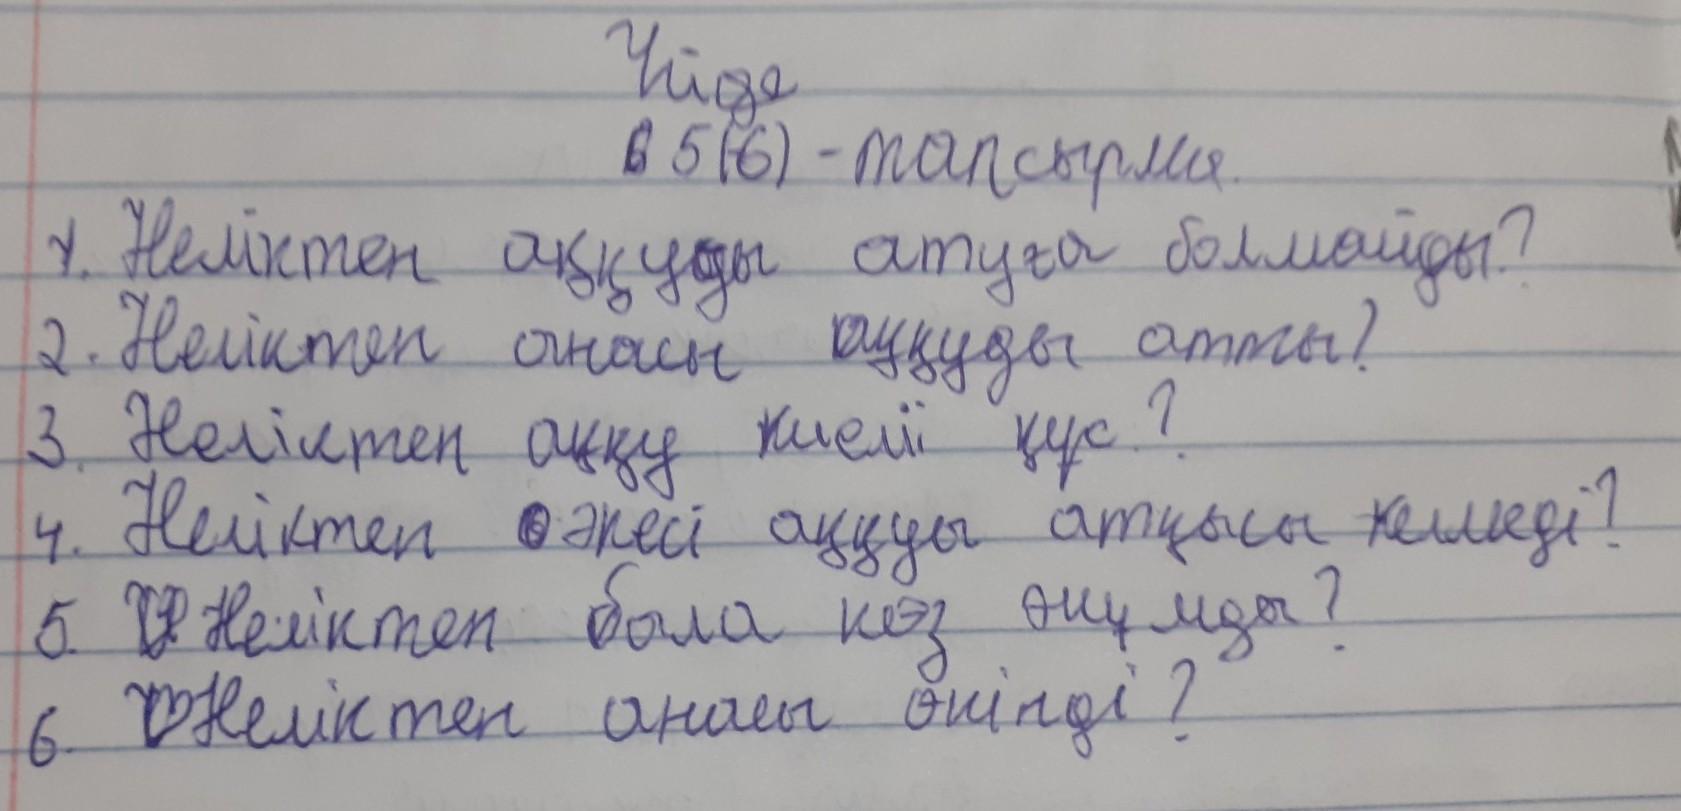 Үйде
5(6)-тапсырма.
1. Неліктен аққуды атуға болмайды?
2. Неліктен анасы аққуды атты?
3. Неліктен аққу киелі құс?
4. Неліктен әкесі аққуды атқысы келмеді?
5. Неліктен бала көз жұмды?
6. Неліктен анасы өкінді?